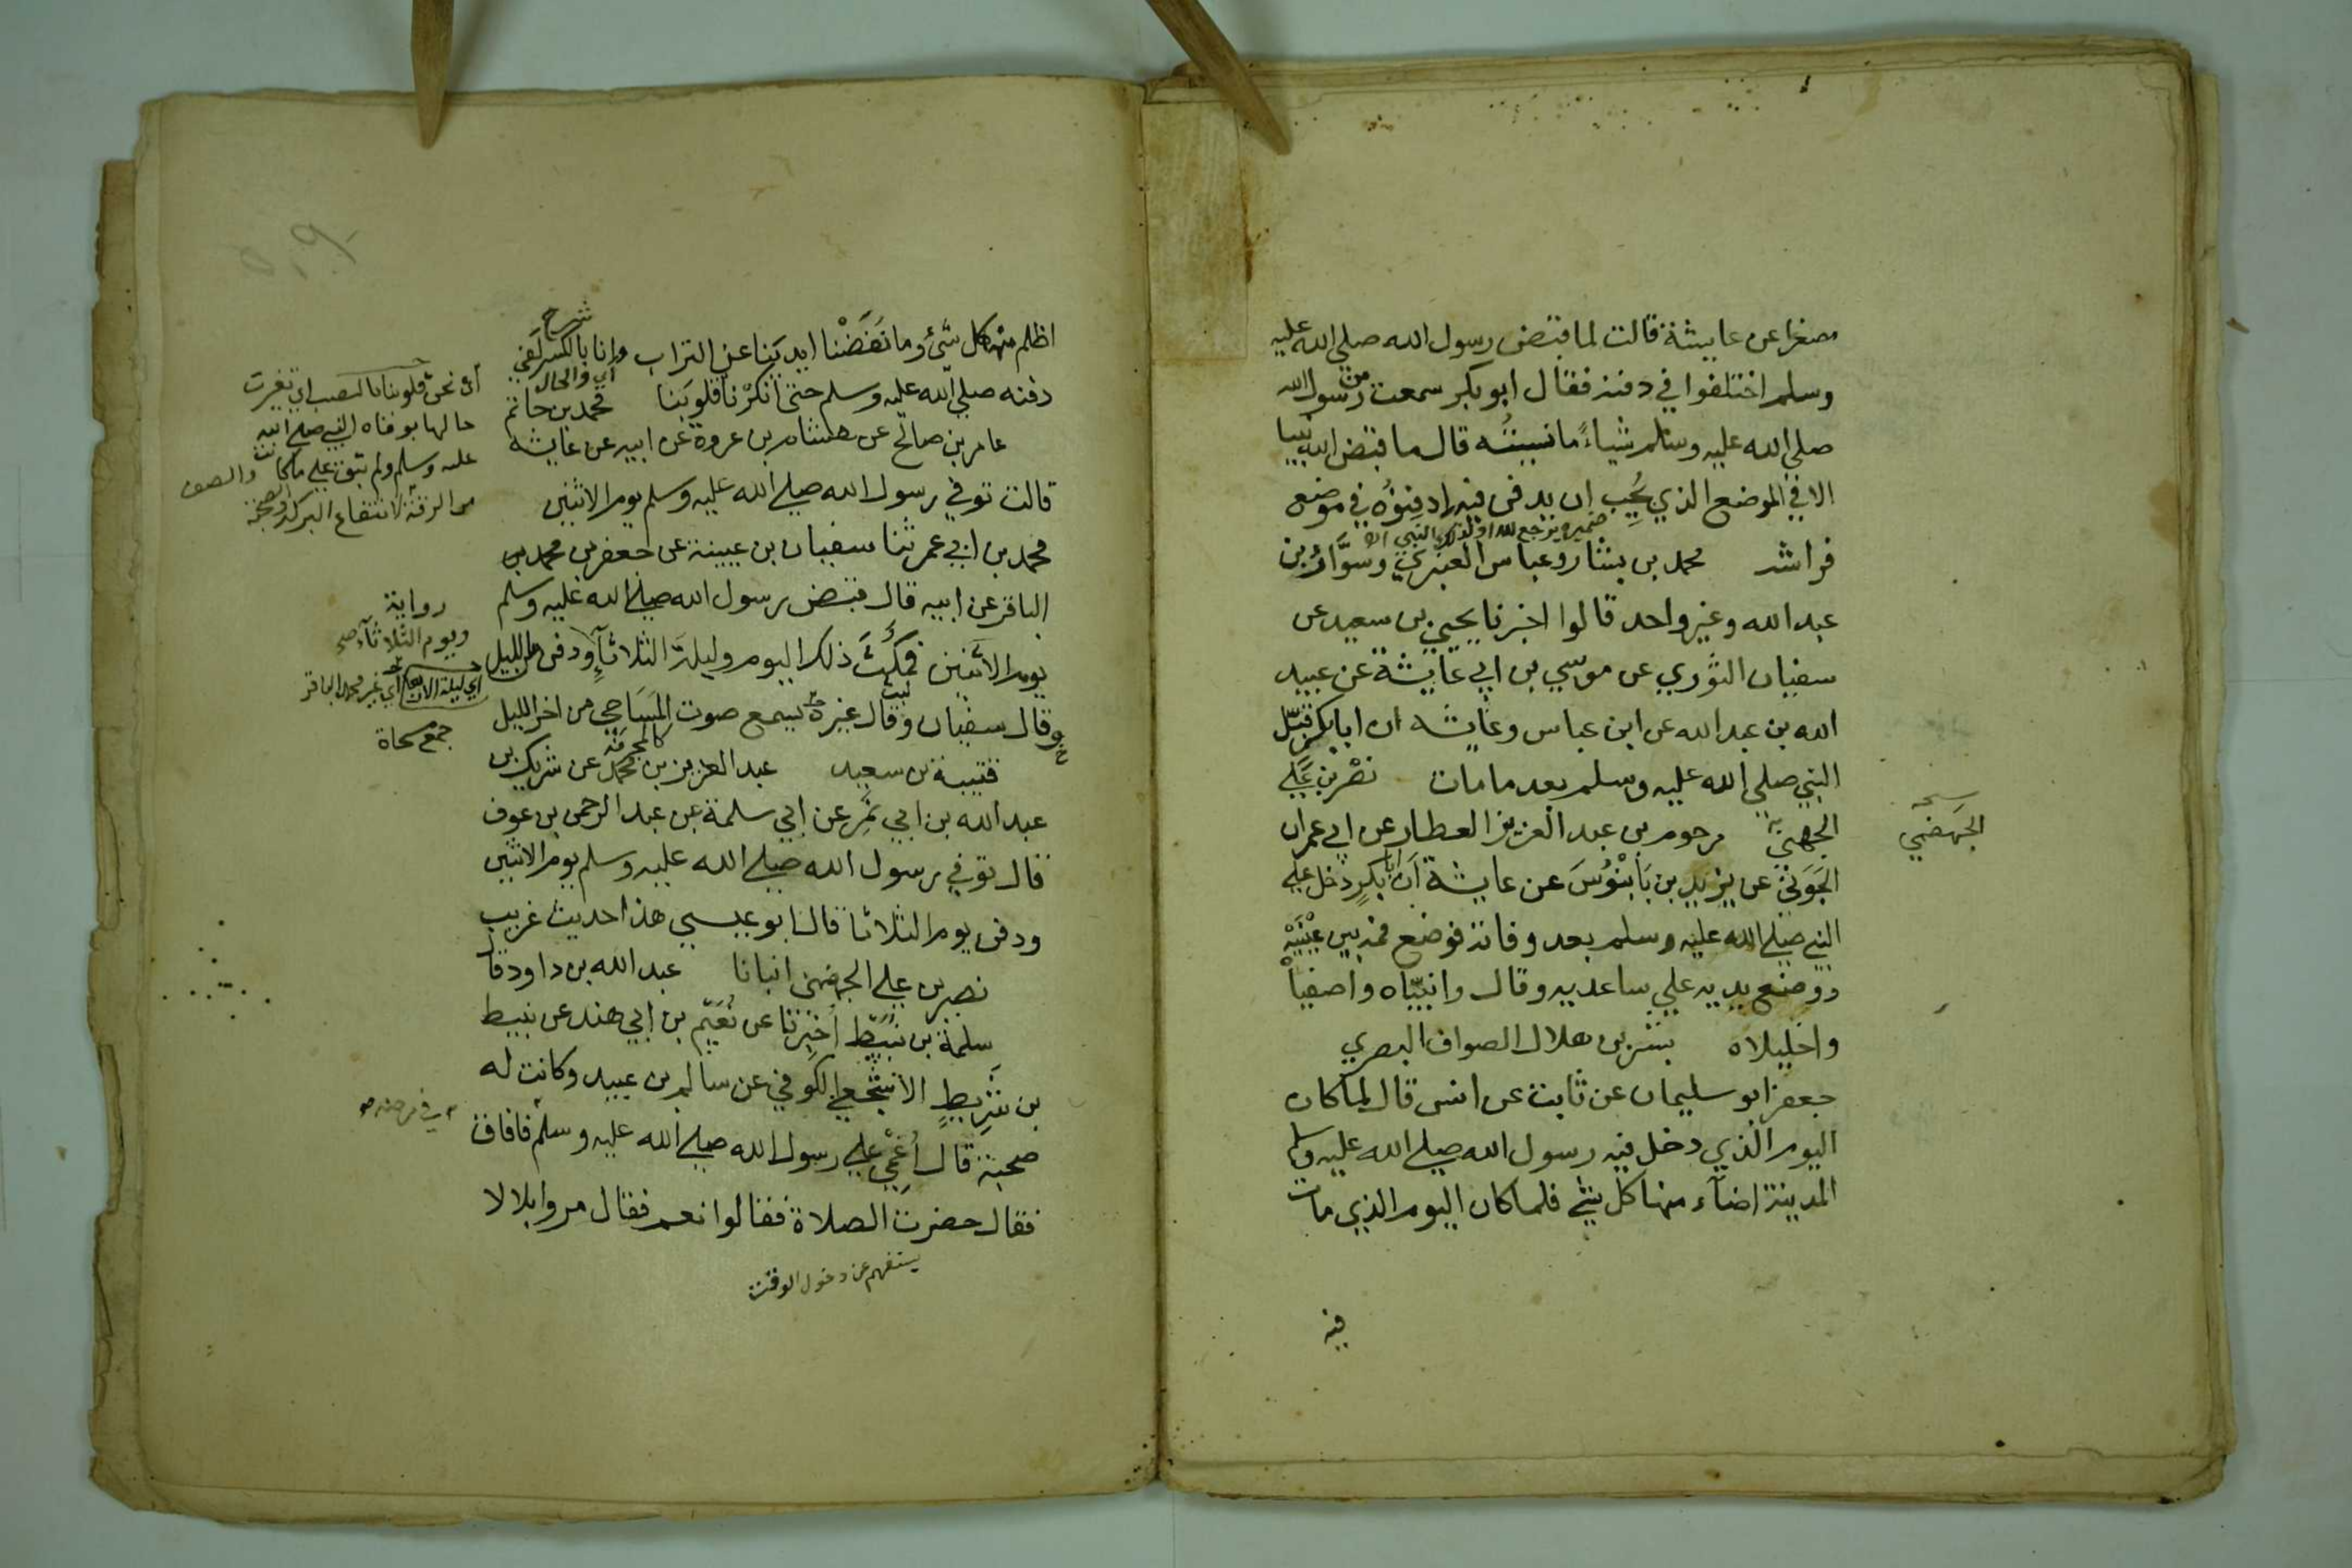 مصغرا عن عايشة قالت لما قبض رسول الله صلي الله عليه
وسلم اختلفوا في دفنه فقال ابو بكر سمعت من رسول الله
صلي الله عليه وسلم شياءً ما نسيتُه قال ما قبض الله نبيا
الا في الموضع الذي يُحِب ان يدفن فيه ادفِنوُه في موضع
ضميره يرجع لله او لذلك النبي
فراشه محمد بن بشار وعباس العنبري وسَوَّارُ بن
عبد الله وغير واحد قالوا اخبرنا يحيي بن سعيد عن
سفيان الثوري عن موسي بن ابي عايشة عن عبيد
الله بن عبد الله عن ابن عباس وعايشه ان ابا بكر قبّل
النبي صلي الله عليه وسلم بعد ما مات نصر بن علي
الجهني مرحوم بن عبد العزيز العطار عن ابي عمران
نسخه
الجهضمي
الجَوَني عن يزيد بن بَابَنُوسَ عن عايشة ان ابا بكرٍ دخل علي
النبي صلي الله عليه وسلم بعد وفاته فوضع فمه بين عينيه
ووضع يديه علي ساعديه وقال وانبيّاه واصفياه
واخليلاه بشر بن هلال الصواف البصري
جعفر ابو سليمان عن ثابت عن انس قال لما كان
اليوم الذي دخل فيه رسول الله صلي الله عليه وسلم
المدينة اضآء منها كل شئ فلما كان اليوم الذي مات
فيه
اظلم منها كل شَئ وما نَفَضْنا ايديَنا عن التراب وانا بالكسر لفي
شرح
اي والحال
دفنه صلي الله عليه وسلم حتي انكرْنا قلوبَنا محمد بن حاتم
عامر بن صالح عن هشام بن عروة عن ابيه عن عايشه
قالت توفي رسول الله صلي الله عليه وسلم يوم الاثنين
محمد بن ابي عمر ثنا سفيان بن عيينة عن جعفر بن محمد بن
الباقر عن ابيه قال قبض رسول الله صلي الله عليه وسلم
يوم الاثنين فمكُثَ ذلك اليوم وليلةَ الثلاثآءِ ودفن من الليل
وقال سفيان وقال غيره يسمع صوت المَسَاحِي من اخر الليل
قتيبة بن سعيد عبد العزيز بن محمد عن شريك بن
عبد الله بن ابي نَمِر عن ابي سلمة بن عبد الرحمن بن عوف
قال توفي رسول الله صلي الله عليه وسلم يوم الاثنين
ودفن يوم الثلاثا قال ابو عيسي هذا حديث غريب
نصر بن علي الجهضمي انبانا عبد الله بن داود قال
سلمة بن نُبَيْط اخبرنا عن نُعَيْم بن ابي هند عن نبيط
بن شَرِيطٍ الاشجعي الكوفي عن سالم بن عبيد وكانت له
صحبة قال اُغْمِيَ علي رسول الله صلي الله عليه وسلم فافاق
فقال حضرت الصلاة فقالوا نعم فقال مروا بلالا
يستفهم عن دخول الوقت
أي نحن قلوبنا بالنصب اي تغيرت
حالها بوفاه النبي صلي الله
عليه وسلم ولم تبق علي ما كانت
من الرقة لانقطاع البركة
رواية
ويوم الثلاثآء صح
اي ليلة الاربعا اي غير محمد الباقر
جمع مسحاة
في مرضه